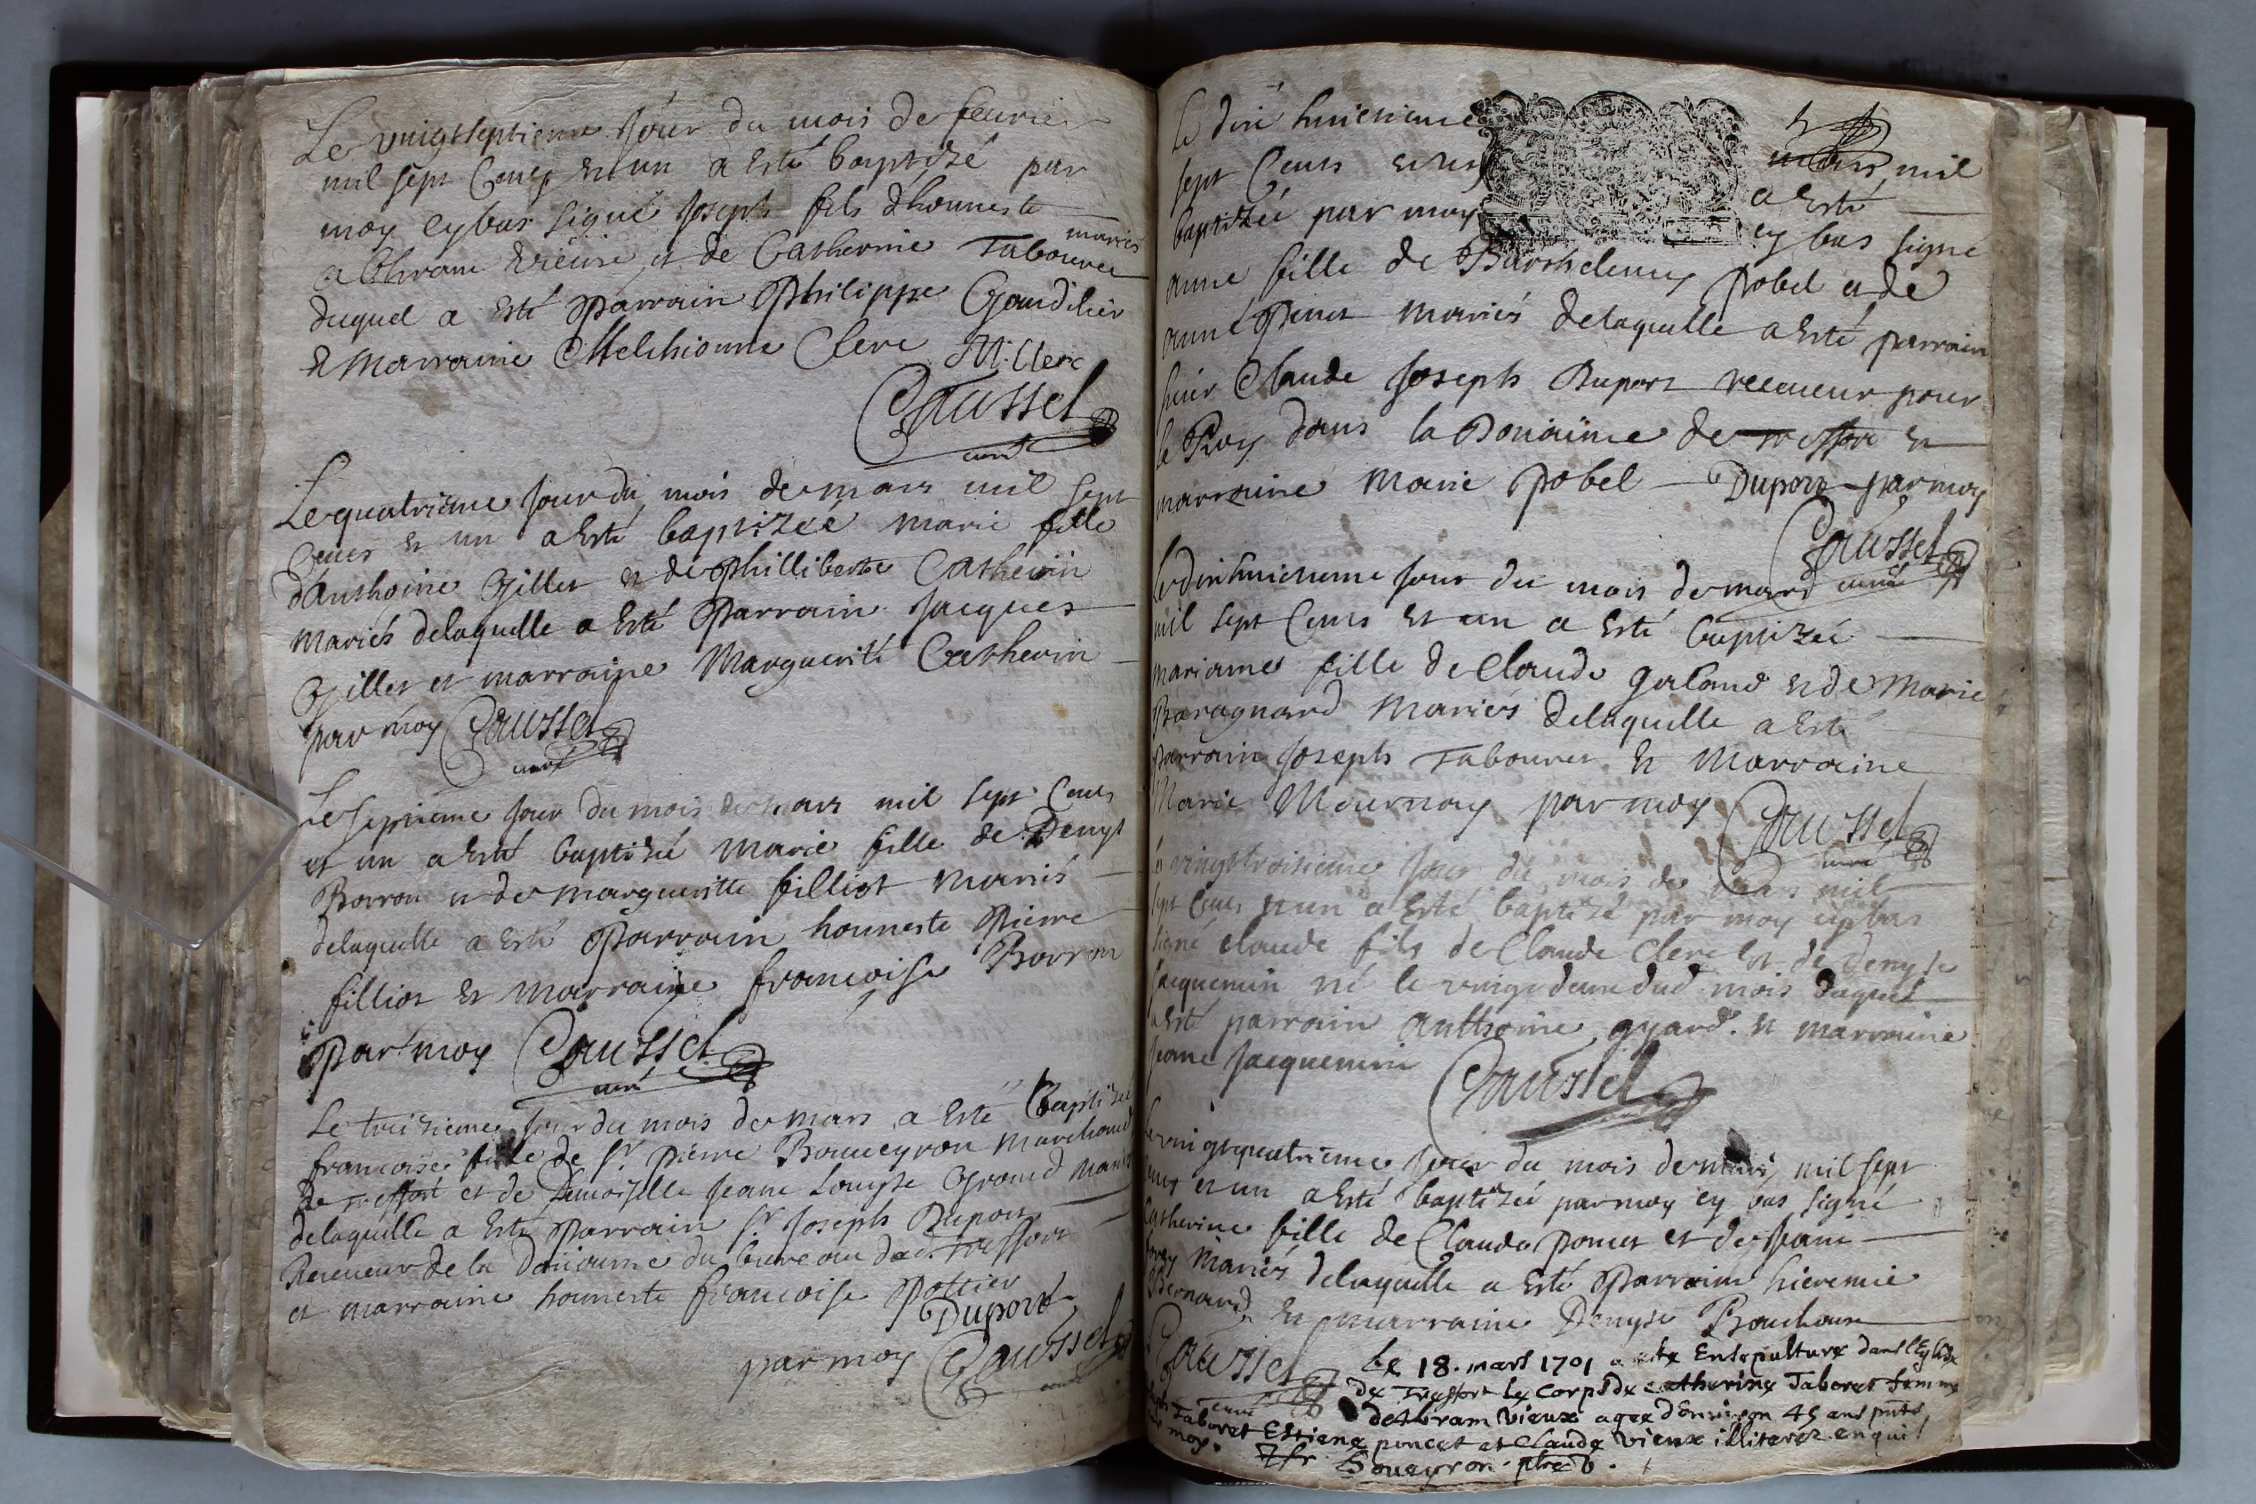 Le vingtseptieme Jour du mois de feurier
mil sept Cens et un a esté baptizé par
moy cy bas signé Joseph fils d'honneste
Abram et de Catherine Tabouret mariés
duquel a esté Parrain Philippe Gaudilier
et Marraine Melchionne Clerc M. Clerc
Caussel
curé
Le quatrieme Jour du mois de mars mil sept
Cens et un a esté baptizée Marie fille
d'Anthoine Gillet et de Philliberte Catherin
mariés delaquelle a esté Parrain Jacques
Gillet et marraine Marguerite Catherin
par moy Caussel
curé
Le septieme Jour du mois de mars mil sept Cens
et un a esté baptizée Marie fille de Denys
Borron et de Margueritte filliot mariés
delaquelle a esté Parrain honneste Pierre
filliot et Marraine francoise Borron
Par moy Caussel
curé
Le treizieme Jour du mois de mars a esté Baptizée
francoise fille de Sr Pierre Boueyron Marchand
de Treffort et de Damoiselle Jeane Louyse Grand mariés
delaquelle a esté Parrain Sr Joseph Duport
Receueur de la Doüanne du bureau dud. Treffort
et marraine honneste francoise Pottier
Duport
par moy Caussel
curé
Le dix huictieme mars mil
sept Cens et un a esté
baptizée par moy cy bas signé
Anne fille de Barthelemy Pobel et de
Anne Pinet mariés delaquelle a esté parrain
sieur Claude Joseph Duport receueur pour
le Roy dans la Doüaine de Treffort et
marraine Marie Pobel Duport par moy
Caussel
curé
Le dix huictieme Jour du mois de mars
mil sept Cens et un a esté baptizée
Mariane fille de Claude Galand et de Marie
Baragnard Mariés delaquelle a esté
Parrain Joseph Tabouret et Marraine
Marie Mournay par moy Caussel
curé
Le vingt troisieme Jour du mois de Mars mil
sept Cens et un a esté baptizé par moy cy bas
signé Claude fils de Claude Clerc et de Denyse
Jacquemin né le vingt deux dud. mois duquel
a esté parrain Anthoine Gyard et marraine
Jeane Jacquemin Caussel
Le vingt quatrieme Jour du mois de mars mil sept
Cens et un a esté baptizée par moy cy bas signé
Catherine fille de Claude Poncet et de Jeane
mariés delaquelle a esté Parrain hieremie
Bernard et marraine Denyse Bouchoux
Caussel
curé
Le 18. mars 1701 a este Ensepulture dans l'Eglise
de Treffort le corps de catherine Taboret femme
de Abram Vieux agee d'Enuiron 45 ans pnts
Taboret Estiene poncet et Claude Vieux illiterez enquis
moy. Boueyron ptre